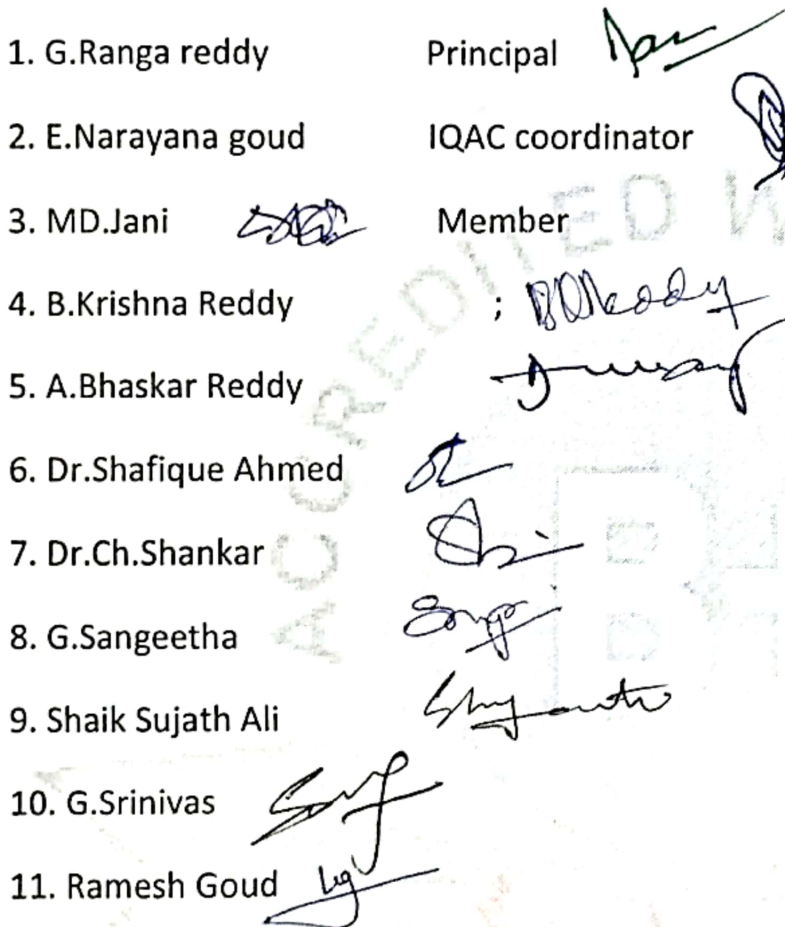 1. G.Ranga reddy Principal
2. E.Narayana goud IQAC coordinator
3. MD.Jani Member
4. B.Krishna Reddy ;
5. A.Bhaskar Reddy
6. Dr.Shafique Ahmed
7. Dr.Ch.Shankar
8. G.Sangeetha
9. Shaik Sujath Ali
10. G.Srinivas
11. Ramesh Goud
ACCREDITED